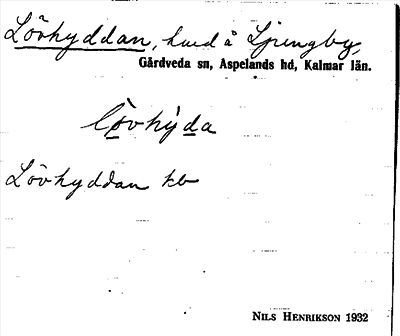 Lövhyddan, hund å Ljungby,
Gårdveda sn, Aspelands hd, Kalmar län.
lövhỳda
Lövhyddan kb
NILS HENRIKSON 1932